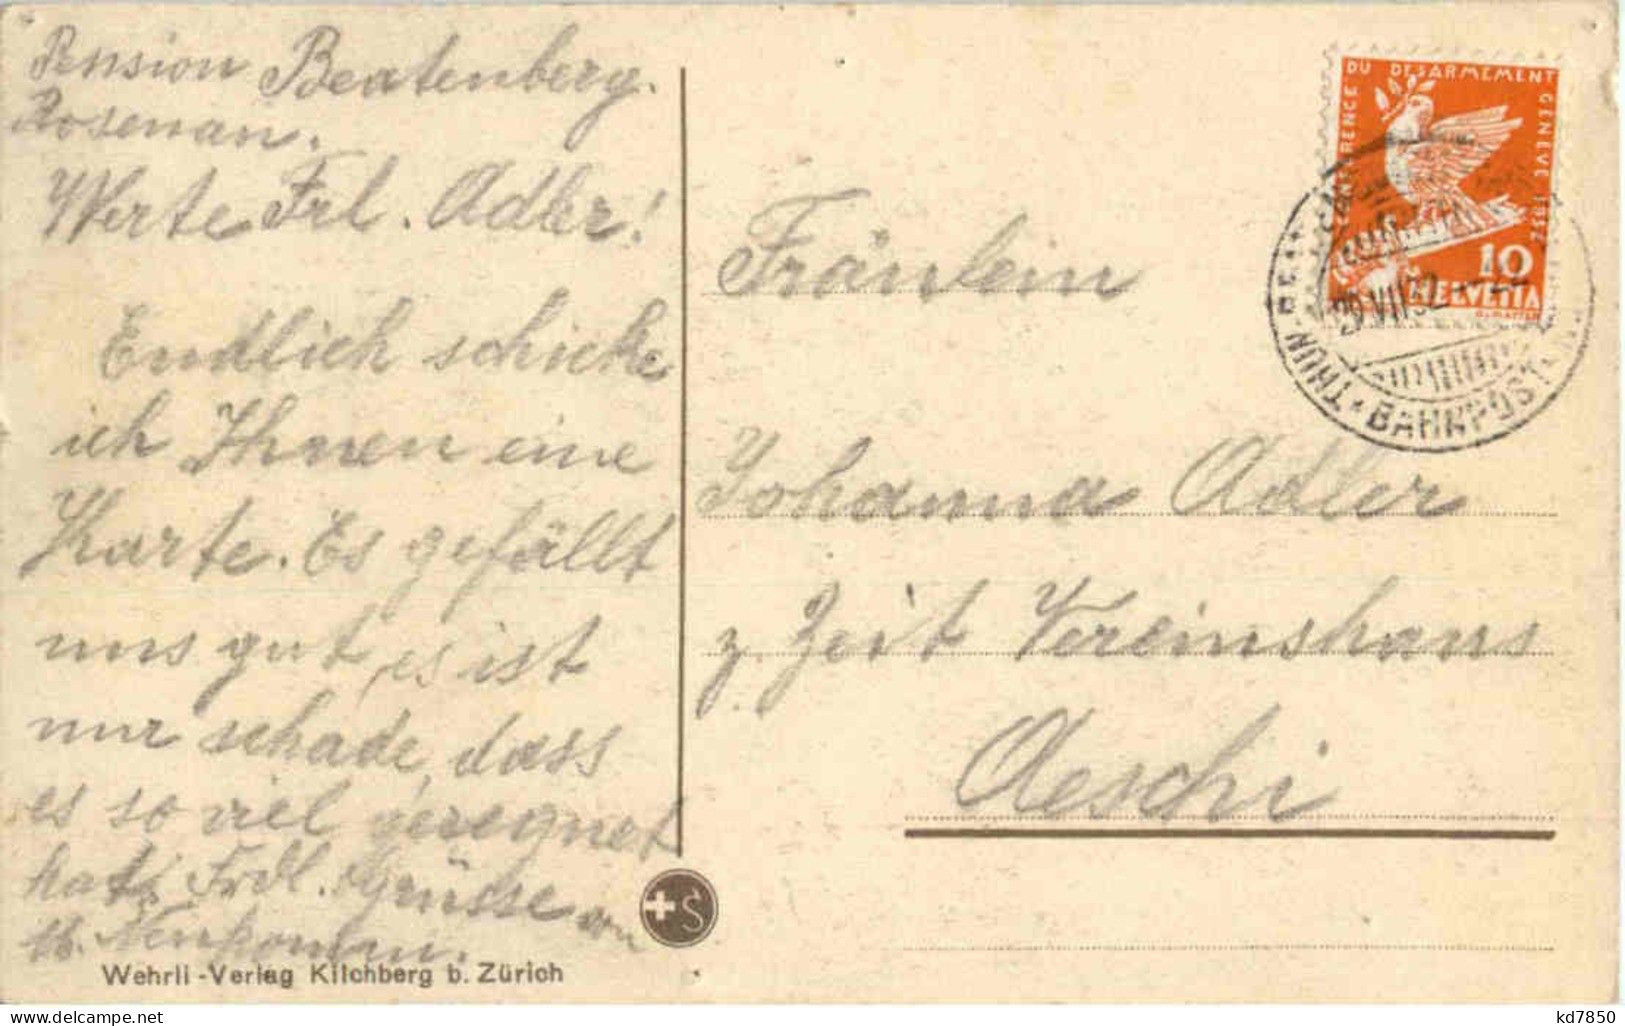 Pension Beatenberg.
Rosenau.
Werte Frl. Adler!
Endlich schicke
ich Ihnen eine
Karte. Es gefällt
uns gut, es ist
nur schade, dass
es so viel geregnet
hat. Frdl. Grüsse von
Wehrli-Verlag Kilchberg b. Zürich
CONFERENCE DU DESARMEMENT GENEVE 1932
10
HELVETIA
29.VII.32
THUN · BAHNPOST
Fräulein
Johanna Adler
z. Zeit Vereinshaus
Aeschi
+S
ansichtskartenversand.com
kd7850